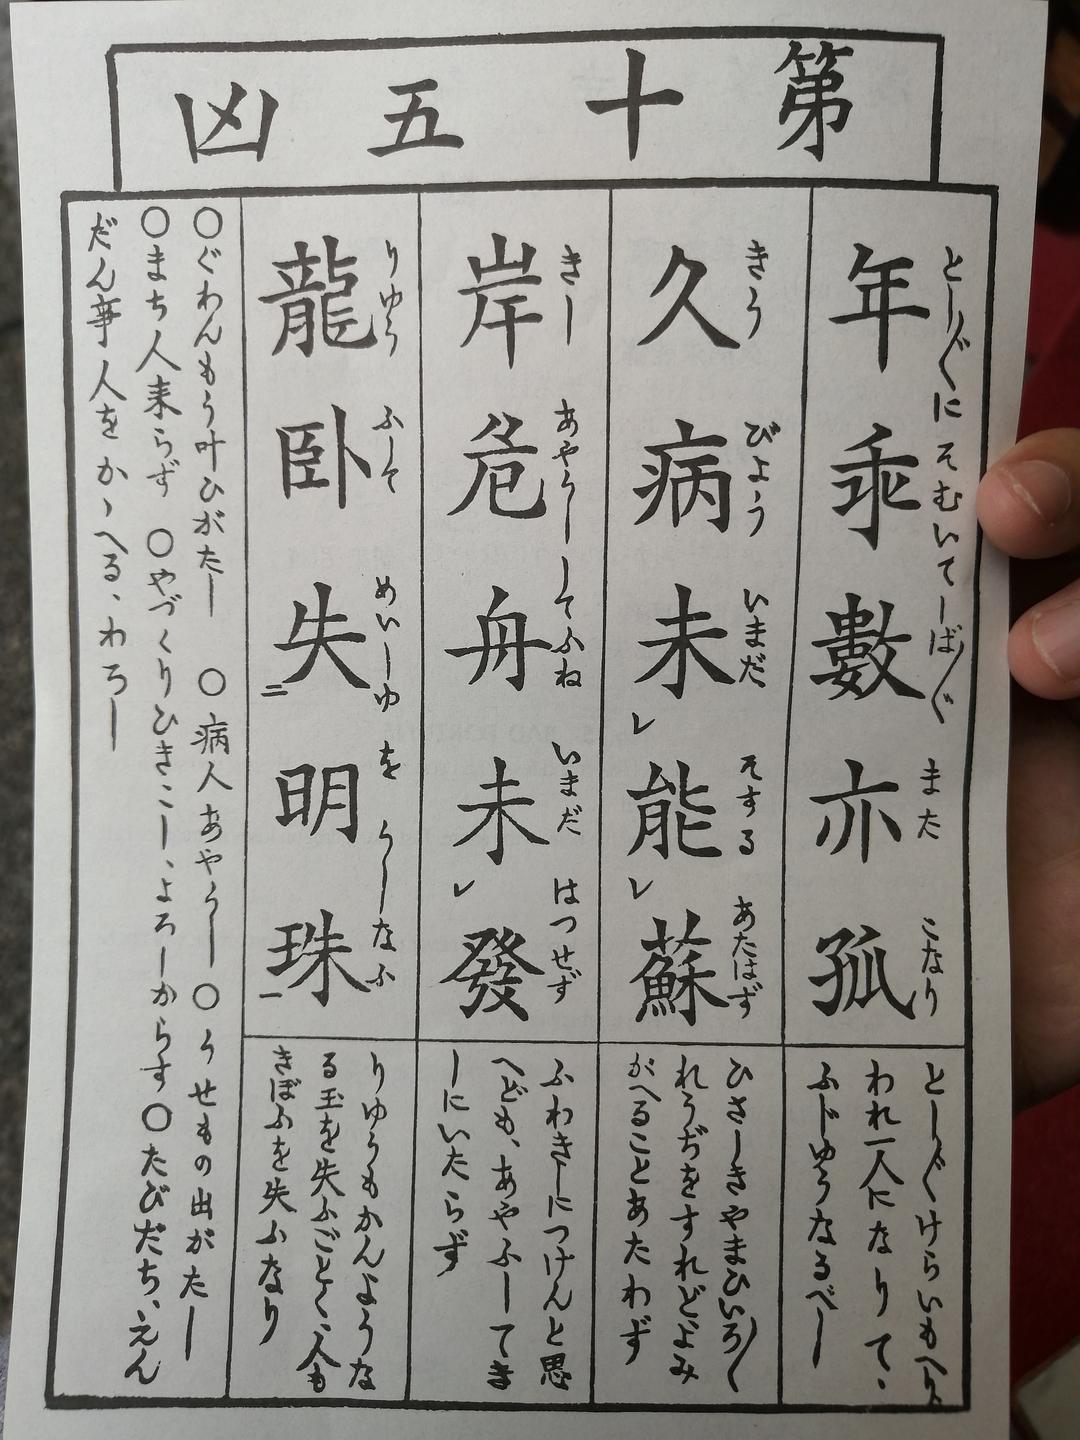 第十五凶
年乖數亦孤
とし〴〵にそむいてしば〴〵
また
こなり
とし〴〵けらいもへり、
われ一人になりて、
ふじゆうなるべし
久病未レ能レ蘇
きう
びよう
いまだ
そする
あたはず
ひさしきやまひいろ〳〵
れうぢをすれどよみ
がへることあたわず
岸危舟未レ發
きし
あやうしして
ふね
いまだ
はつせず
ふわきしにつけんと思
へども、あやふしてま
しにいたらず
龍卧失二明珠一
りゆう
ふして
めいしゆ
を
うしなふ
りゆうもかんような
る玉を失ふごとく、人も
きぼふを失ふなり
〇ぐわんもう叶ひがたし 〇病人あやうし 〇うせもの出がたし
〇まち人来らず 〇やづくりひきこし、よろしからす 〇たびだち、えん
だん事人をかゝへる、わろし